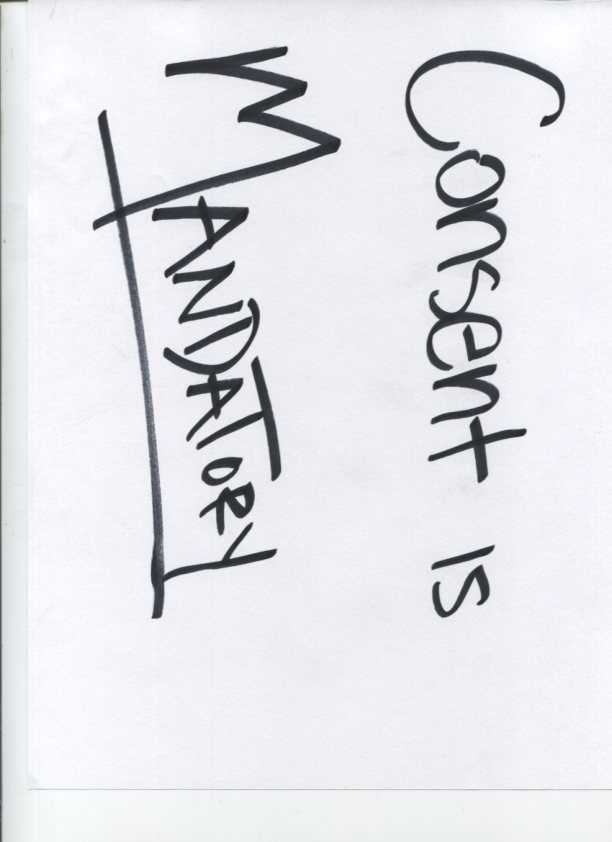 Consent is
MANDATORY